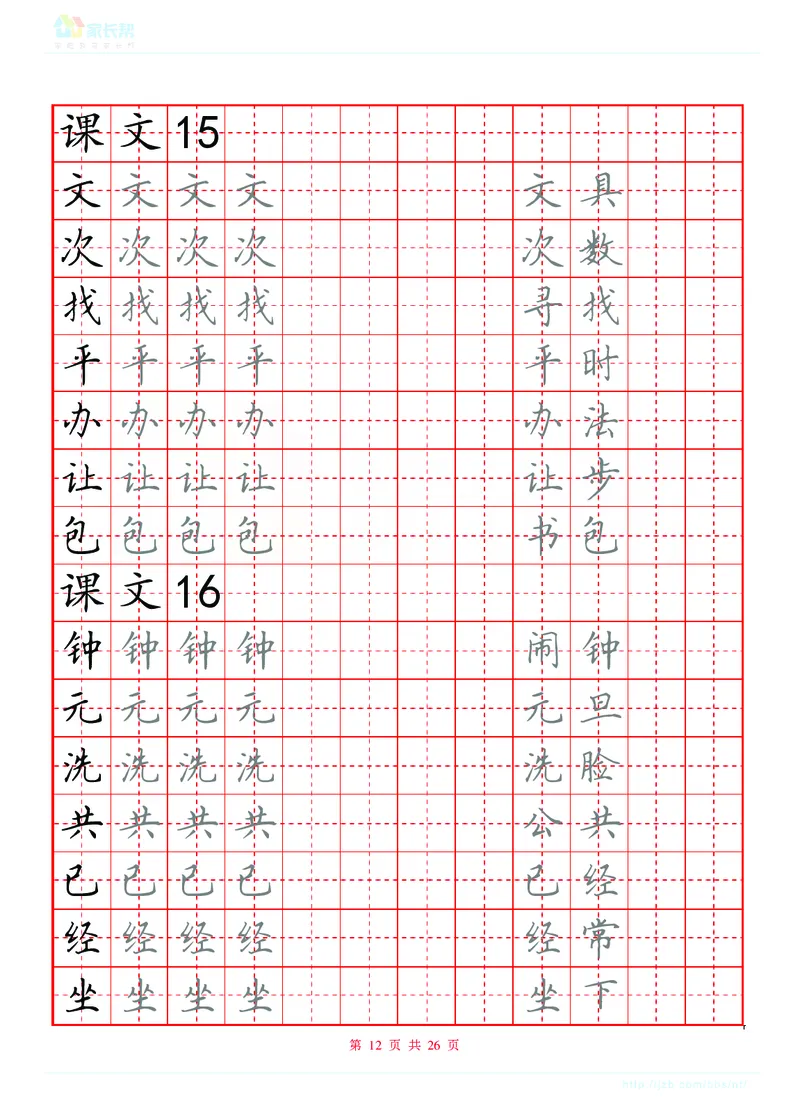 家长帮
课文15
文文文文 文具
次次次次 次数
找找找找 寻找
平平平平 平时
办办办办 办法
让让让让 让步
包包包包 书包
课文16
钟钟钟钟 闹钟
元元元元 元旦
洗洗洗洗 洗脸
共共共共 公共
已已已已 已经
经经经经 经常
坐坐坐坐 坐下
第 12 页 共 26 页